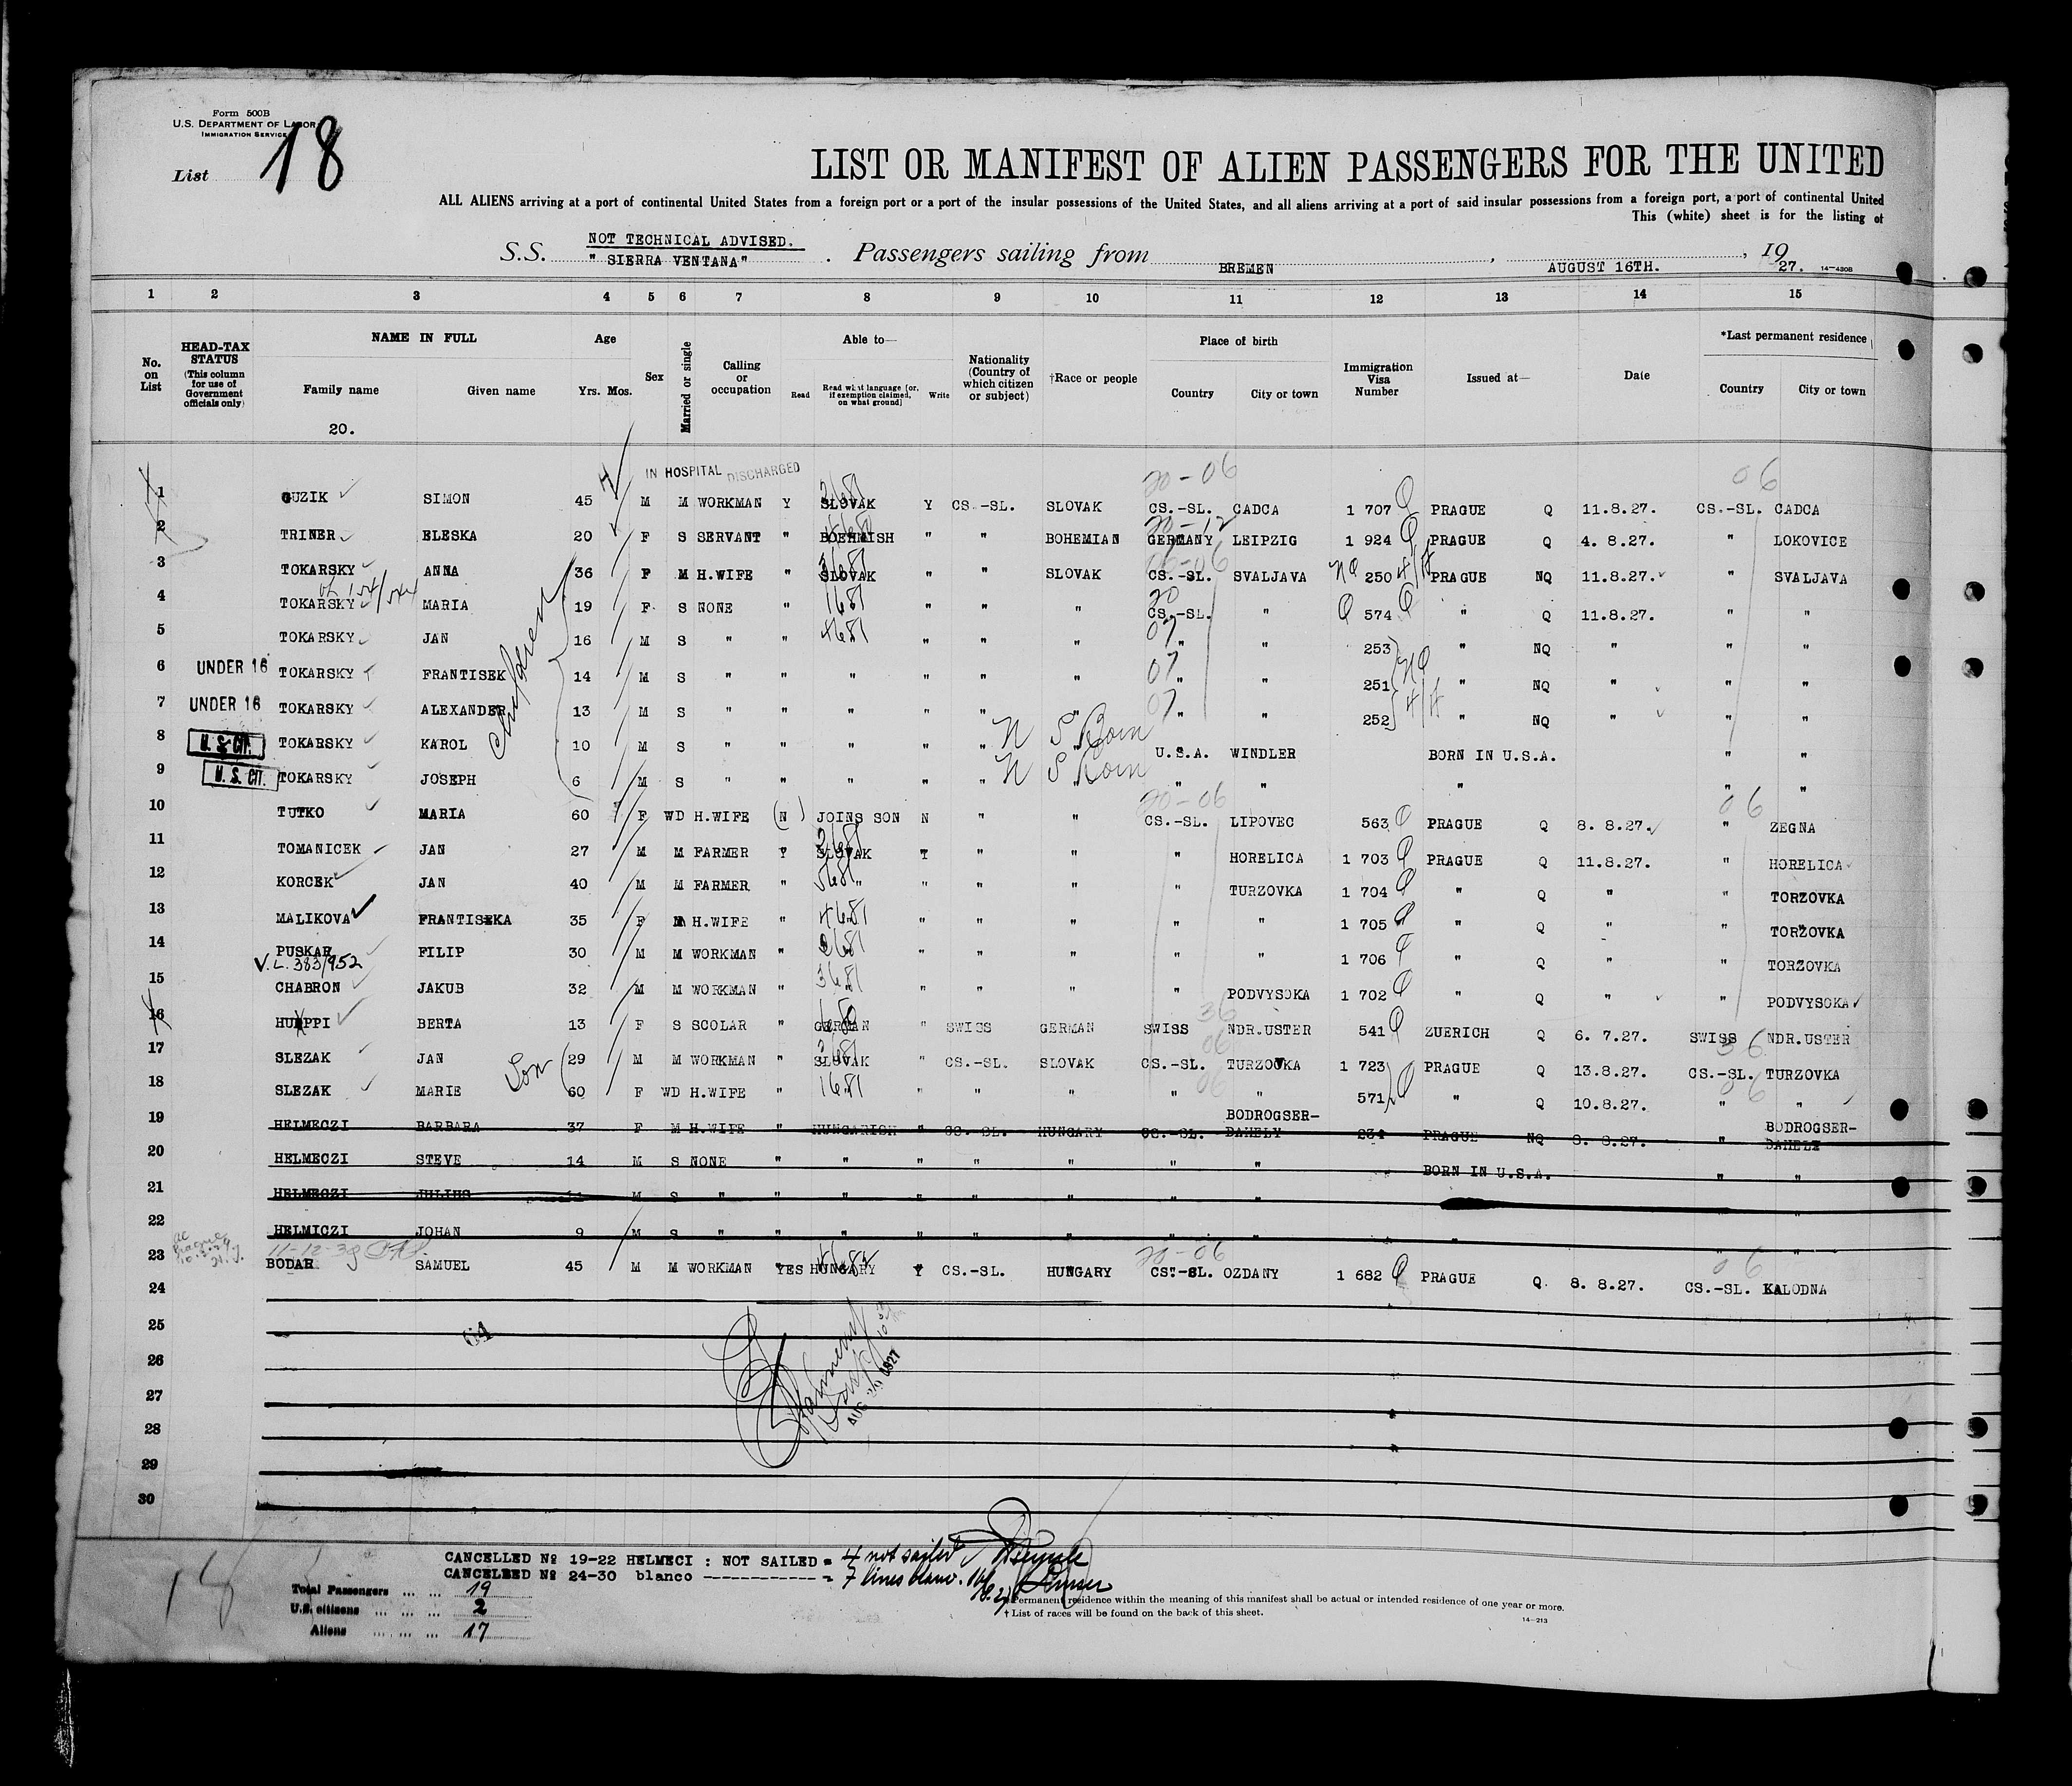 Form 500B
U.S. DEPARTMENT OF LABOR
IMMIGRATION SERVICE
List 18
LIST OR MANIFEST OF ALIEN PASSENGERS FOR THE UNITED
ALL ALIENS arriving at a port of continental United States from a foreign port or a port of the insular possessions of the United States, and all aliens arriving at a port of said insular possessions from a foreign port, a port of continental United
This (white) sheet is for the listing of
NOT TECHNICAL ADVISED.
S.S. "SIERRA VENTANA" . Passengers sailing from BREMEN , AUGUST 16TH. , 19 27. 14—430B
1 2 3 4 5 6 7 8 9 10 11 12 13 14 15
No. on List
HEAD-TAX STATUS (This column for use of Government officials only)
NAME IN FULL
Family name Given name
20.
Age
Yrs. Mos.
Sex
Married or single
Calling or occupation
Able to—
Read Read what language [or, if exemption claimed, on what ground] Write
Nationality (Country of which citizen or subject)
†Race or people
Place of birth
Country City or town
Immigration Visa Number
Issued at—
Date
*Last permanent residence
Country City or town
IN HOSPITAL DISCHARGED 20-06 06
1 GUZIK SIMON 45 M M WORKMAN Y SLOVAK Y CS.-SL. SLOVAK CS.-SL. CADCA 1 707 Q PRAGUE Q 11.8.27. CS.-SL. CADCA
20-12
2 TRINER ELESKA 20 F S SERVANT " BOEHMISH " " BOHEMIAN GERMANY LEIPZIG 1 924 Q PRAGUE Q 4. 8.27. " LOKOVICE
3 TOKARSKY ANNA 36 F M H.WIFE " SLOVAK " " SLOVAK CS.-SL. SVALJAVA NQ 250 PRAGUE NQ 11.8.27. " SVALJAVA
4 TOKARSKY MARIA 19 F S NONE " " " " CS.-SL. " Q 574 Q " Q 11.8.27. " "
5 TOKARSKY JAN 16 M S " " " " " " " 253 " NQ " " "
6 UNDER 16 TOKARSKY FRANTISEK 14 M S " " " " " " 07 " " 251 NQ " NQ " " "
7 UNDER 16 TOKARSKY ALEXANDER 13 M S " " " " " " 07 " " 252 " NQ " " "
8 U.S. CIT. TOKARSKY KAROL 10 M S " " " " " " U.S.A. WINDLER BORN IN U.S.A. " "
9 U.S. CIT. TOKARSKY JOSEPH 6 M S " " " " " " " " " "
20-06 06
10 TUTKO MARIA 60 F WD H.WIFE (N) JOINS SON N " " CS.-SL. LIPOVEC 563 Q PRAGUE Q 8. 8.27. " ZEGNA
11 TOMANICEK JAN 27 M M FARMER Y SLOVAK Y " " " HORELICA 1 703 Q PRAGUE Q 11.8.27. " HORELICA
12 KORCEK JAN 40 M M FARMER " " " " " " TURZOVKA 1 704 Q " Q " " TORZOVKA
13 MALIKOVA FRANTISEKA 35 F M H.WIFE " " " " " " 1 705 Q " Q " " TORZOVKA
14 PUSKAR FILIP 30 M M WORKMAN " " " " " " 1 706 Q " Q " " TORZOVKA
V.L. 383/952
15 CHABRON JAKUB 32 M M WORKMAN " " " " " PODVYSOKA 1 702 Q " Q " " PODVYSOKA
36
16 HURPPI BERTA 13 F S SCOLAR " GERMAN " SWISS GERMAN SWISS NDR.USTER 541 Q ZUERICH Q 6. 7.27. SWISS NDR.USTER
17 SLEZAK JAN Son 29 M M WORKMAN " SLOVAK " CS.-SL. SLOVAK CS.-SL. TURZOVKA 1 723 PRAGUE Q 13.8.27. CS.-SL. TURZOVKA
18 SLEZAK MARIE 60 F WD H.WIFE " " " " " " 571 Q " Q 10.8.27. " "
19 HELMECZI BARBARA 37 F M H.WIFE " HUNGARISH " CS.-SL. HUNGARY CS.-SL. BODROGSER-DAHELY 234 PRAGUE NQ 8. 8.27. " BODROGSER-DAHELY
20 HELMECZI STEVE 14 M S NONE " " " " " " " BORN IN U.S.A. " "
21 HELMECZI JULIUS M S " " " " " " " " "
22 HELMICZI JOHAN 9 M S " " " " " " " " " " "
11-12-38
20-06 06
23 BODAR SAMUEL 45 M M WORKMAN YES HUNGARY Y CS.-SL. HUNGARY CS.-SL. OZDANY 1 682 Q PRAGUE Q. 8. 8.27. CS.-SL. KALODNA
24
25
26
27
28
29
30
AUG 1927
CANCELLED No 19-22 HELMECI : NOT SAILED = 4 not sailed
CANCELBED No 24-30 blanco ------------ = 7 lines blanc.
Total Passengers ... ... 19
U.S. citizens ... ... ... 2
Aliens ... ... ... 17
Permanent residence within the meaning of this manifest shall be actual or intended residence of one year or more.
† List of races will be found on the back of this sheet.
14—213
18